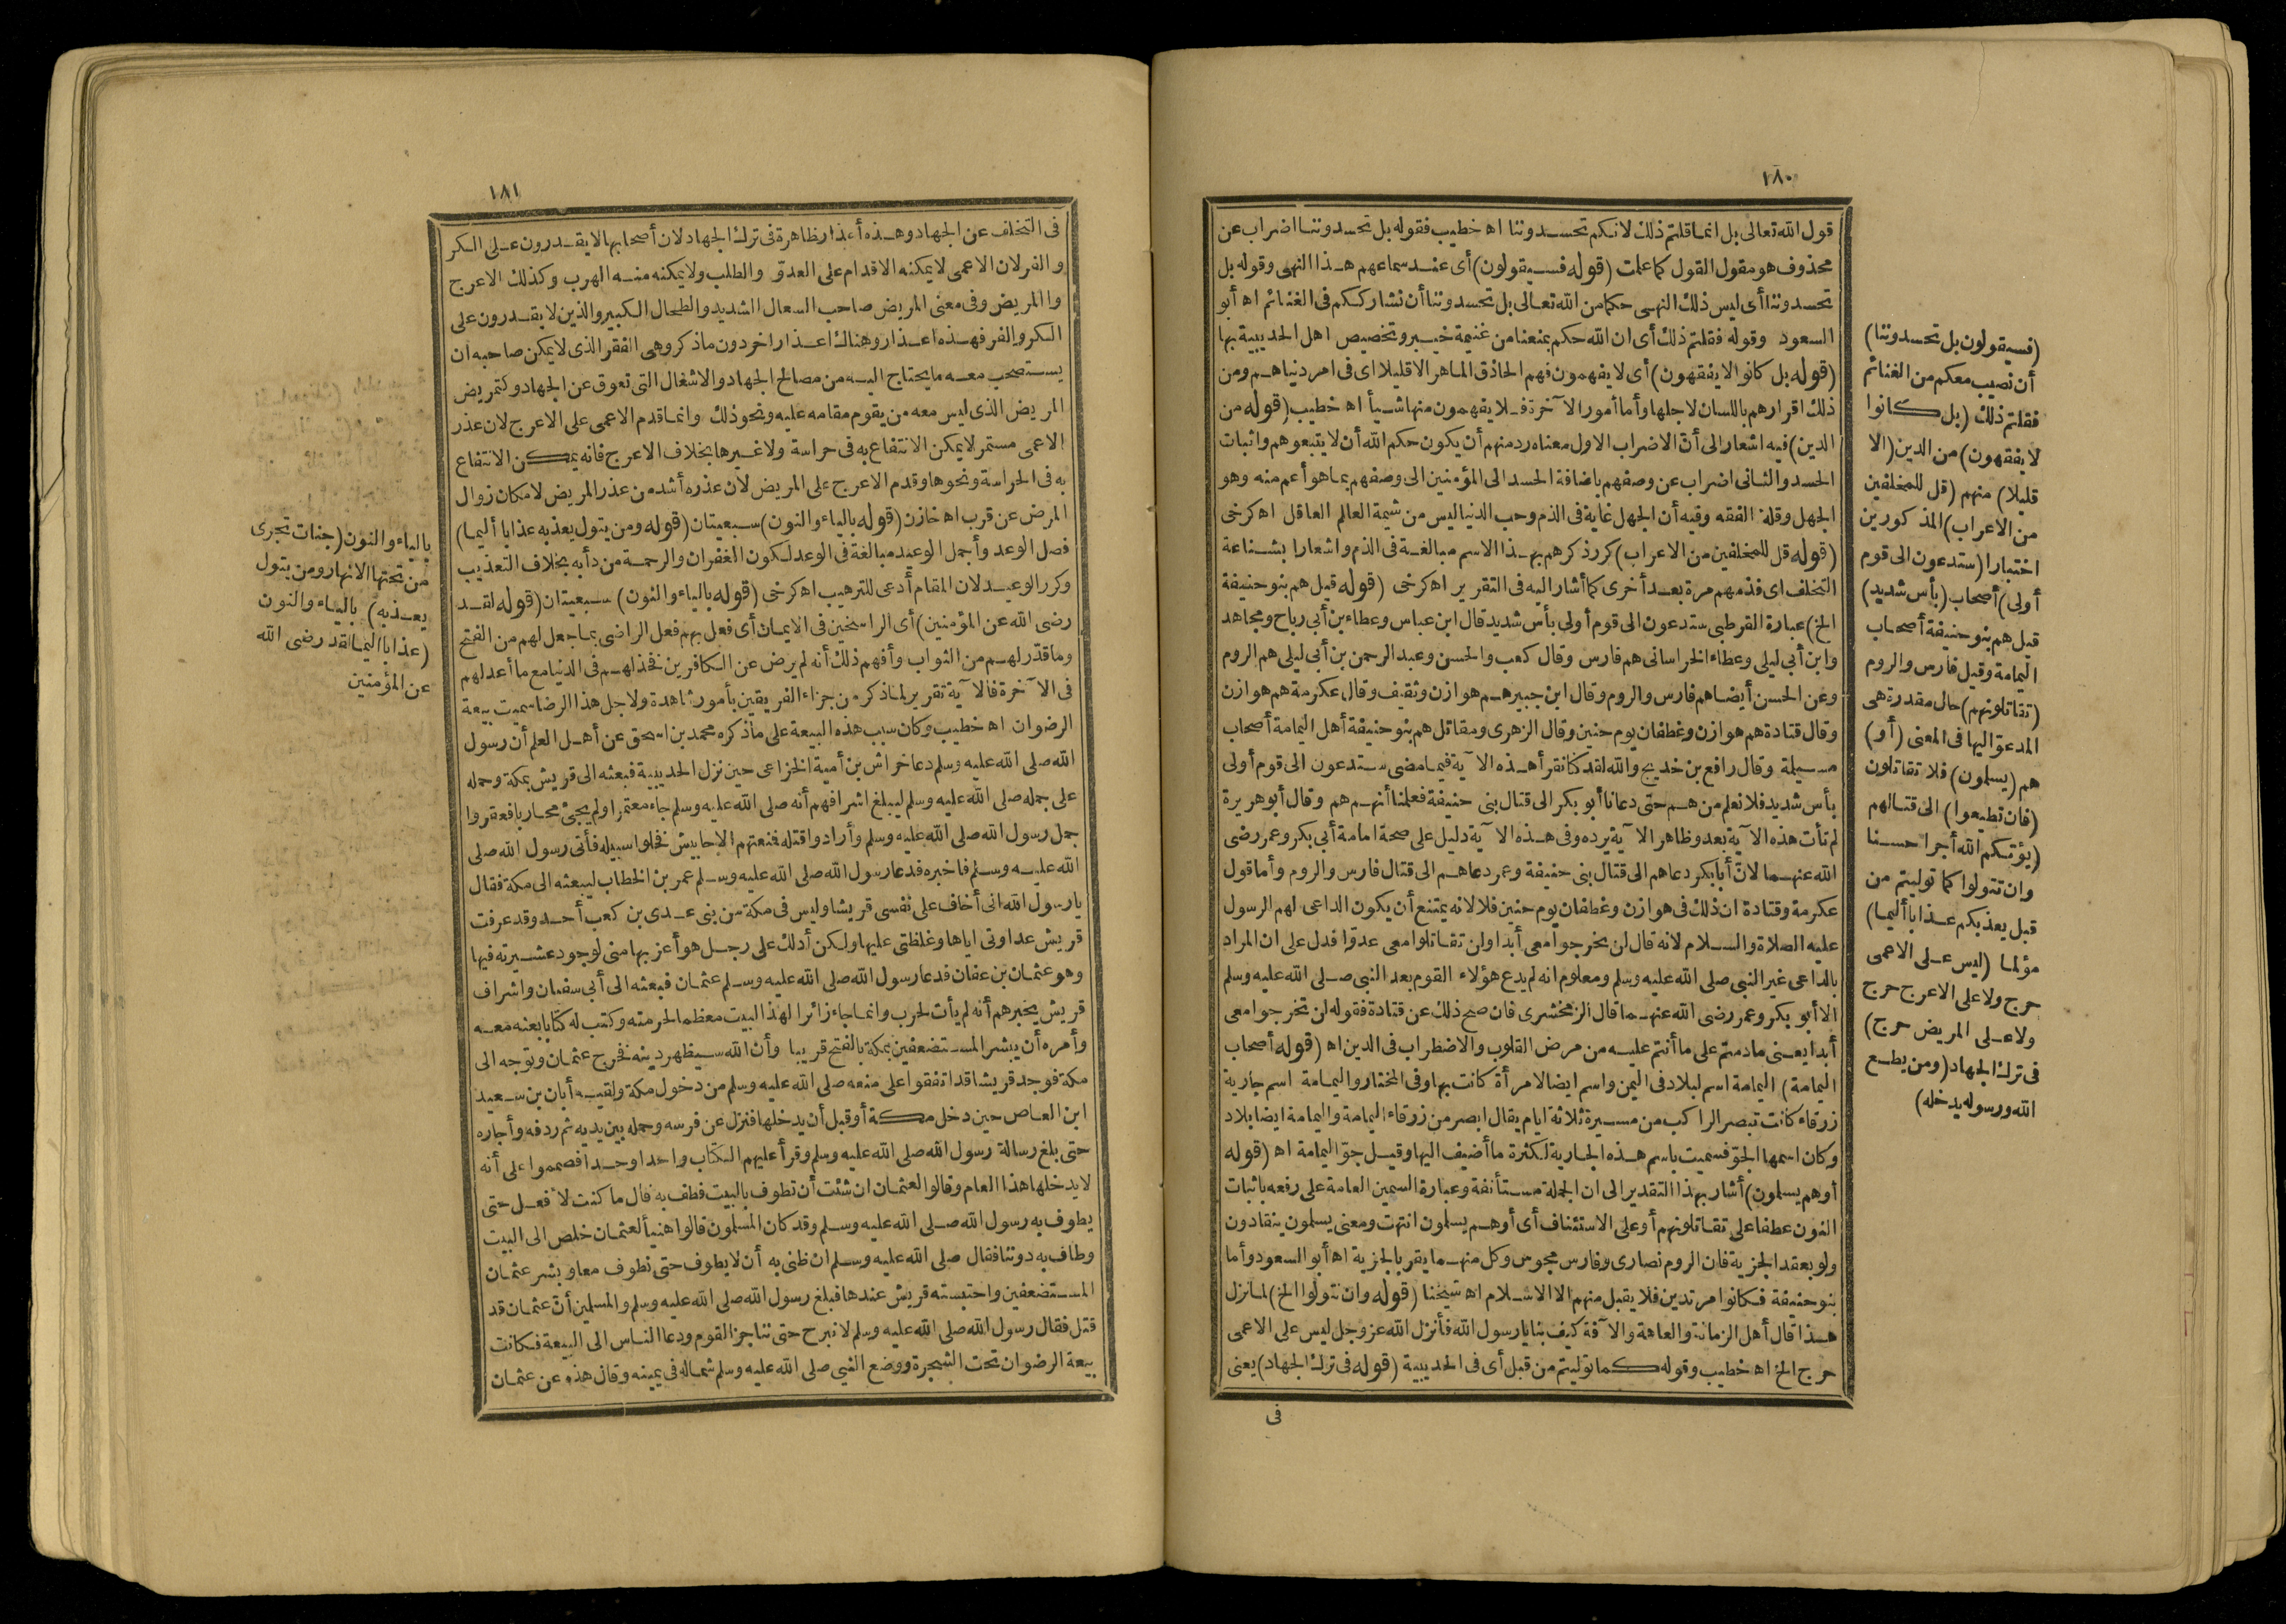 ١٨٠
قول الله تعالى بل انما قلتم ذلك لانكم تحسدوننا اه خطيب فقوله بل تحسدوننا اضراب عن
محذوف هو مقول القول كما علمت (قوله فسيقولون) أى عند سماعهم هذا النهى وقوله بل
تحسدوننا أى ليس ذلك النهى حكما من الله تعالى بل تحسدوننا أن نشارككم فى الغنائم اه أبو
السعود وقوله فقلتم ذلك أى ان الله حكم بمنعنا من غنيمة خيبر وتخصيص اهل الحديبية بها
(قوله بل كانوا لا يفقهون) أى لا يفهمون فهم الحاذق الماهر الا قليلا اى فى امر دنياهم ومن
ذلك اقرارهم باللسان لاجلها وأما أمور الآخرة فلا يفهمون منها شيأ اه خطيب (قوله من
الدين) فيه اشعار الى أن الاضراب الاول معناه رد منهم أن يكون حكم الله أن لا يتبعوهم واثبات
الحسد والثانى اضراب عن وصفهم باضافة الحسد الى المؤمنين الى وصفهم بما هو أعم منه وهو
الجهل وقلة الفقه وفيه أن الجهل غاية فى الذم وحب الدنيا ليس من شيمة العالم العاقل اه كرخى
(قوله قل للمخلفين من الاعراب) كرر ذكرهم بهذا الاسم مبالغة فى الذم واشعارا بشناعة
التخلف اى فذمهم مرة بعد أخرى كما أشار اليه فى التقرير اه كرخى (قوله قيل هم بنو حنيفة
الخ) عبارة القرطبى ستدعون الى قوم أولى بأس شديد قال ابن عباس وعطاء بن أبى رباح ومجاهد
وابن أبى ليلى وعطاء الخراسانى هم فارس وقال كعب والحسن وعبد الرحمن بن أبى ليلى هم الروم
وعن الحسن أيضا هم فارس والروم وقال ابن جبير هم هوازن وثقيف وقال عكرمة هم هوازن
وقال قتادة هم هوازن وغطفان يوم حنين وقال الزهرى ومقاتل هم بنو حنيفة أهل اليمامة أصحاب
مسيلة وقال رافع بن خديج والله لقد كنا نقرأ هذه الآية فيما مضى ستدعون الى قوم أولى
بأس شديد فلا نعلم من هم حتى دعانا أبو بكر الى قتال بنى حنيفة فعلمنا أنهم هم وقال أبو هريرة
لم تأت هذه الآية بعد وظاهر الآية يرده وفى هذه الآية دليل على صحة امامة أبى بكر وعمر رضى
الله عنهما لان أبا بكر دعاهم الى قتال بنى حنيفة وعمر دعاهم الى قتال فارس والروم وأما قول
عكرمة وقتادة ان ذلك فى هوازن وغطفان يوم حنين فلا لانه يمتنع أن يكون الداعى لهم الرسول
عليه الصلاة والسلام لانه قال لن يخرجوا معى أبدا ولن تقاتلوا معى عدوّا فدل على ان المراد
بالداعى غير النبى صلى الله عليه وسلم ومعلوم انه لم يدع هؤلاء القوم بعد النبى صلى الله عليه وسلم
الا أبو بكر وعمر رضى الله عنهما قال الزمخشرى فان صح ذلك عن قتادة فقوله لن تخرجوا معى
أبدا يعنى ما دمتم على ما أنتم عليه من مرض القلوب والاضطراب فى الدين اه (قوله أصحاب
اليمامة) اليمامة اسم لبلاد فى اليمن واسم ايضا لامرأة كانت بها وفى المختار واليمامة اسم جارية
زرقاء كانت تبصر الراكب من مسيرة ثلاثة ايام يقال ابصر من زرقاء اليمامة واليمامة ايضا بلاد
وكان اسمها الجوّ فسميت باسم هذه الجارية لكثرة ما أضيف اليها وقيل جوّ اليمامة اه (قوله
أوهم يسلمون) أشار بهذا التقدير الى ان الجملة مستأنفة وعبارة السمين العامة على رفعه باثبات
النون عطفا على تقاتلونهم أو على الاستئناف أى أوهم يسلمون انتهت ومعنى يسلمون ينقادون
ولو بعقد الجزية فان الروم نصارى وفارس مجوس وكل منهما يقر بالجزية اه أبو السعود وأما
بنو حنيفة فكانوا مرتدين فلا يقبل منهم الا الاسلام اه شيخنا (قوله وان تتولوا الخ) لما نزل
هذا قال أهل الزمانة والعاهة والآفة كيف بنا يا رسول الله فأنزل الله عز وجل ليس على الاعمى
حرج الخ اه خطيب وقوله كما توليتم من قبل أى فى الحديبية (قوله فى ترك الجهاد) يعنى
فى
(فسيقولون بل تحسدوننا)
أن نصيب معكم من الغنائم
فقلتم ذلك (بل كانوا
لا يفقهون) من الدين (الا
قليلا) منهم (قل للمخلفين
من الاعراب) المذكورين
اختبارا (ستدعون الى قوم
أولى) أصحاب (بأس شديد)
قيل هم بنو حنيفة أصحاب
اليمامة وقيل فارس والروم
(تقاتلونهم) حال مقدرة هى
المدعوّ اليها فى المعنى (أو)
هم (يسلمون) فلا تقاتلون
(فان تطيعوا) الى قتالهم
(يؤتكم الله أجرا حسنا
وان تتولوا كما توليتم من
قبل يعذبكم عذابا أليما)
مؤلما (ليس على الاعمى
حرج ولا على الاعرج حرج
ولا على المريض حرج)
فى ترك الجهاد (ومن يطع
الله ورسوله يدخله)
١٨١
فى التخلف عن الجهاد وهذه أعذار ظاهرة فى ترك الجهاد لان أصحابها لا يقدرون على الكر
والفر لان الاعمى لا يمكنه الاقدام على العدوّ والطلب ولا يمكنه منه الهرب وكذلك الاعرج
والمريض وفى معنى المريض صاحب السعال الشديد والطحال الكبير والذين لا يقدرون على
الكر والفر فهذه اعذار وهناك اعذار اخر دون ما ذكر وهى الفقر الذى لا يمكن صاحبه ان
يستصحب معه ما يحتاج اليه من مصالح الجهاد والاشغال التى تعوق عن الجهاد وكتمريض
المريض الذى ليس معه من يقوم مقامه عليه ونحو ذلك وانما قدم الاعمى على الاعرج لان عذر
الاعمى مستمر لا يمكن الانتفاع به فى حراسة ولا غيرها بخلاف الاعرج فانه يمكن الانتفاع
به فى الحراسة ونحوها وقدم الاعرج على المريض لان عذره أشد من عذر المريض لامكان زوال
المرض عن قرب اه خازن (قوله بالياء والنون) سبعيتان (قوله ومن يتول يعذبه عذابا أليما)
فصل الوعد وأجمل الوعيد مبالغة فى الوعد لكون الغفران والرحمة من دأبه بخلاف التعذيب
وكرر الوعيد لان المقام أدعى للترهيب اه كرخى (قوله بالياء والنون) سبعيتان (قوله لقد
رضى الله عن المؤمنين) أى الراسخين فى الايمان أى فعل بهم فعل الراضى بما جعل لهم من الفتح
وما قدّر لهم من الثواب وأفهم ذلك أنه لم يرض عن الكافرين فخذلهم فى الدنيا مع ما أعد لهم
فى الآخرة فالآية تقرير لما ذكر من جزاء الفريقين بأمور شاهدة ولاجل هذا الرضا سميت بيعة
الرضوان اه خطيب وكان سبب هذه البيعة على ما ذكره محمد بن اسحق عن أهل العلم أن رسول
الله صلى الله عليه وسلم دعا خراش بن أمية الخزاعى حين نزل الحديبية فبعثه الى قريش بمكة وحمله
على جمله صلى الله عليه وسلم ليبلغ اشرافهم أنه صلى الله عليه وسلم جاء معتمرا ولم يجئ محاربا فعقروا
جمل رسول الله صلى الله عليه وسلم وأرادوا قتله فمنعتهم الاحابيش فخلوا سبيله فأتى رسول الله صلى
الله عليه وسلم فاخبره فدعا رسول الله صلى الله عليه وسلم عمر بن الخطاب ليبعثه الى مكة فقال
يا رسول الله انى أخاف على نفسى قريشا وليس فى مكة من بنى عدى بن كعب أحد وقد عرفت
قريش عداوتى اياها وغلظتى عليها ولكن أدلك على رجل هو أعز بها منى لوجود عشيرته فيها
وهو عثمان بن عفان فدعا رسول الله صلى الله عليه وسلم عثمان فبعثه الى أبى سفيان واشراف
قريش يخبرهم أنه لم يأت لحرب وانما جاء زائرا لهذا البيت معظما لحرمته وكتب له كتابا بعثه معه
وأمره أن يبشر المستضعفين بمكة بالفتح قريبا وأن الله سيظهر دينه فخرج عثمان وتوجه الى
مكة فوجد قريشا قد اتفقوا على منعه صلى الله عليه وسلم من دخول مكة ولقيه أبان بن سعيد
ابن العاص حين دخل مكة أو قبل أن يدخلها فنزل عن فرسه وحمله بين يديه ثم ردفه وأجاره
حتى بلغ رسالة رسول الله صلى الله عليه وسلم وقرأ عليهم الكتاب واحدا واحدا فصمموا على أنه
لا يدخلها هذا العام وقالوا لعثمان ان شئت أن تطوف بالبيت فطف به قال ما كنت لأفعل حتى
يطوف به رسول الله صلى الله عليه وسلم وقد كان المسلمون قالوا هنيأ لعثمان خلص الى البيت
وطاف به دوننا فقال صلى الله عليه وسلم ان ظنى به أن لا يطوف حتى نطوف معا وبشر عثمان
المستضعفين واحتبسته قريش عندها فبلغ رسول الله صلى الله عليه وسلم والمسلمين أن عثمان قد
قتل فقال رسول الله صلى الله عليه وسلم لا نبرح حتى نناجز القوم ودعا الناس الى البيعة فكانت
بيعة الرضوان تحت الشجرة ووضع النبى صلى الله عليه وسلم شماله فى يمينه وقال هذه عن عثمان
بالياء والنون (جنات تجرى
من تحتها الانهار ومن يتول
يعذبه) بالياء والنون
(عذابا اليما لقد رضى الله
عن المؤمنين